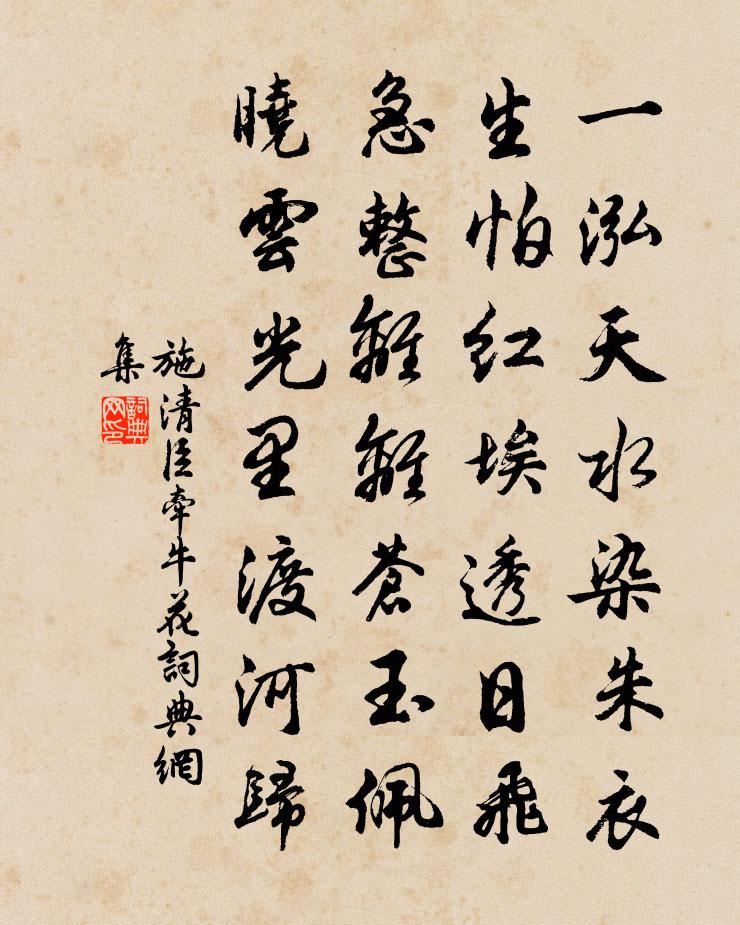 一泓天水染朱衣
生怕红埃透日飛
急整離離蒼玉佩
曉雲光里渡河歸
施清臣牽牛花詞典網
集
詞典
网印